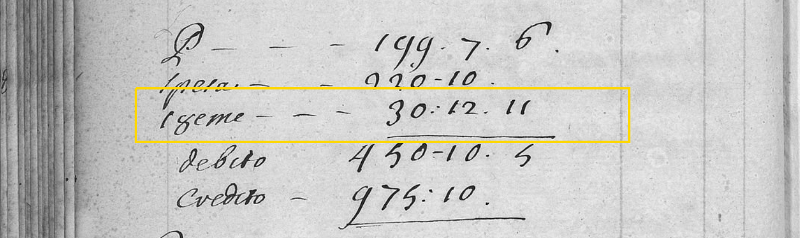 P - - - 199. 7. 6.
Spesa. - - 220-10.
- - - 30:12. 11
debito 450-10. 5
Credito - 975:10.